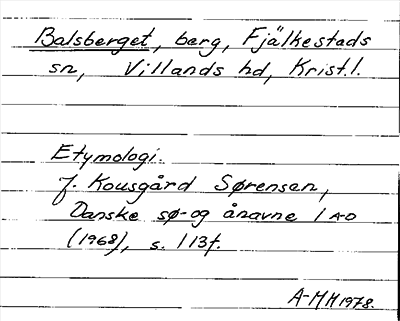 Balsberget, berg, Fjälkestads
sn, Villands hd, Krist.l.
Etymologi.
J. Kousgård Sørensen,
Danske sø- og ånavne 1 A-D
(1968), s. 113f.
A-MH 1978.